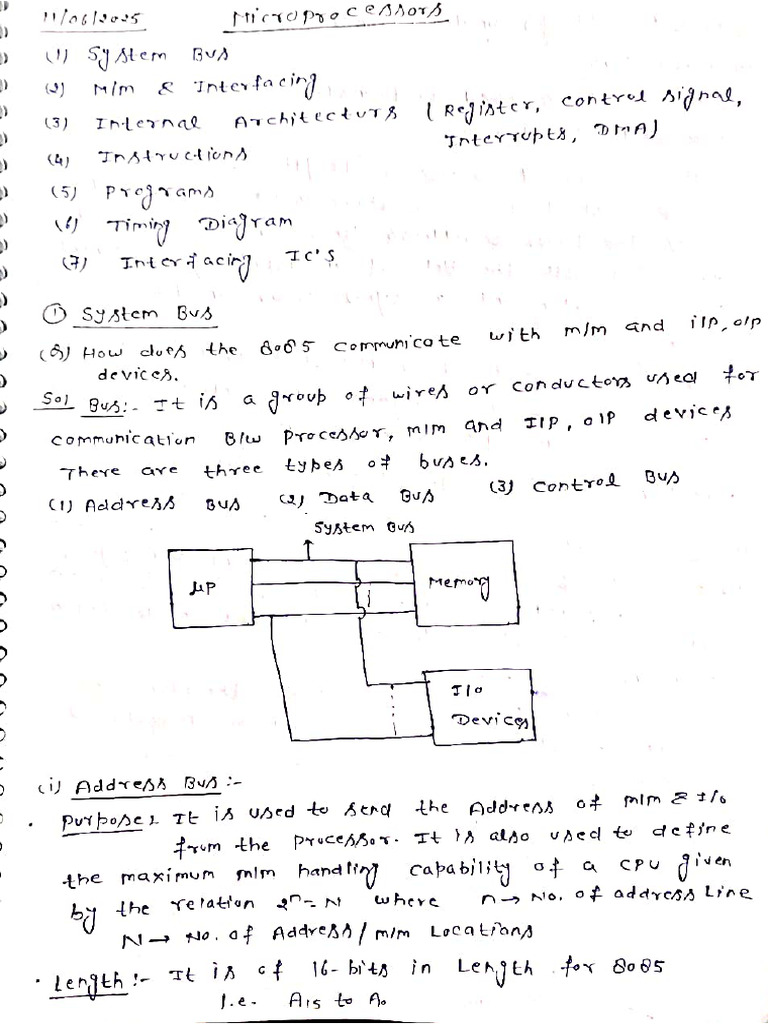 11/06/2025 Microprocessors
(1) System Bus
(2) M/m & Interfacing
(3) Internal Architecture (Register, control signal,
Interrupts, DMA)
(4) Instructions
(5) Programs
(6) Timing Diagram
(7) Interfacing IC'S
① System Bus
(Q) How does the 8085 communicate with m/m and i/p, o/p
devices.
Sol Bus:- It is a group of wires or conductors used for
communication B/w processor, m/m and I/P, o/P devices
There are three types of buses.
(1) Address Bus (2) Data Bus (3) Control Bus
System Bus
μP
Memory
I/o
Devices
(i) Address Bus:-
• Purpose: It is used to send the Address of m/m & I/o
from the processor. It is also used to define
the maximum m/m handling capability of a CPU given
by the relation 2ⁿ = N where n → No. of address Line
N → No. of Address/m/m Locations
• Length:- It is of 16-bits in Length for 8085
I.e. A15 to A0